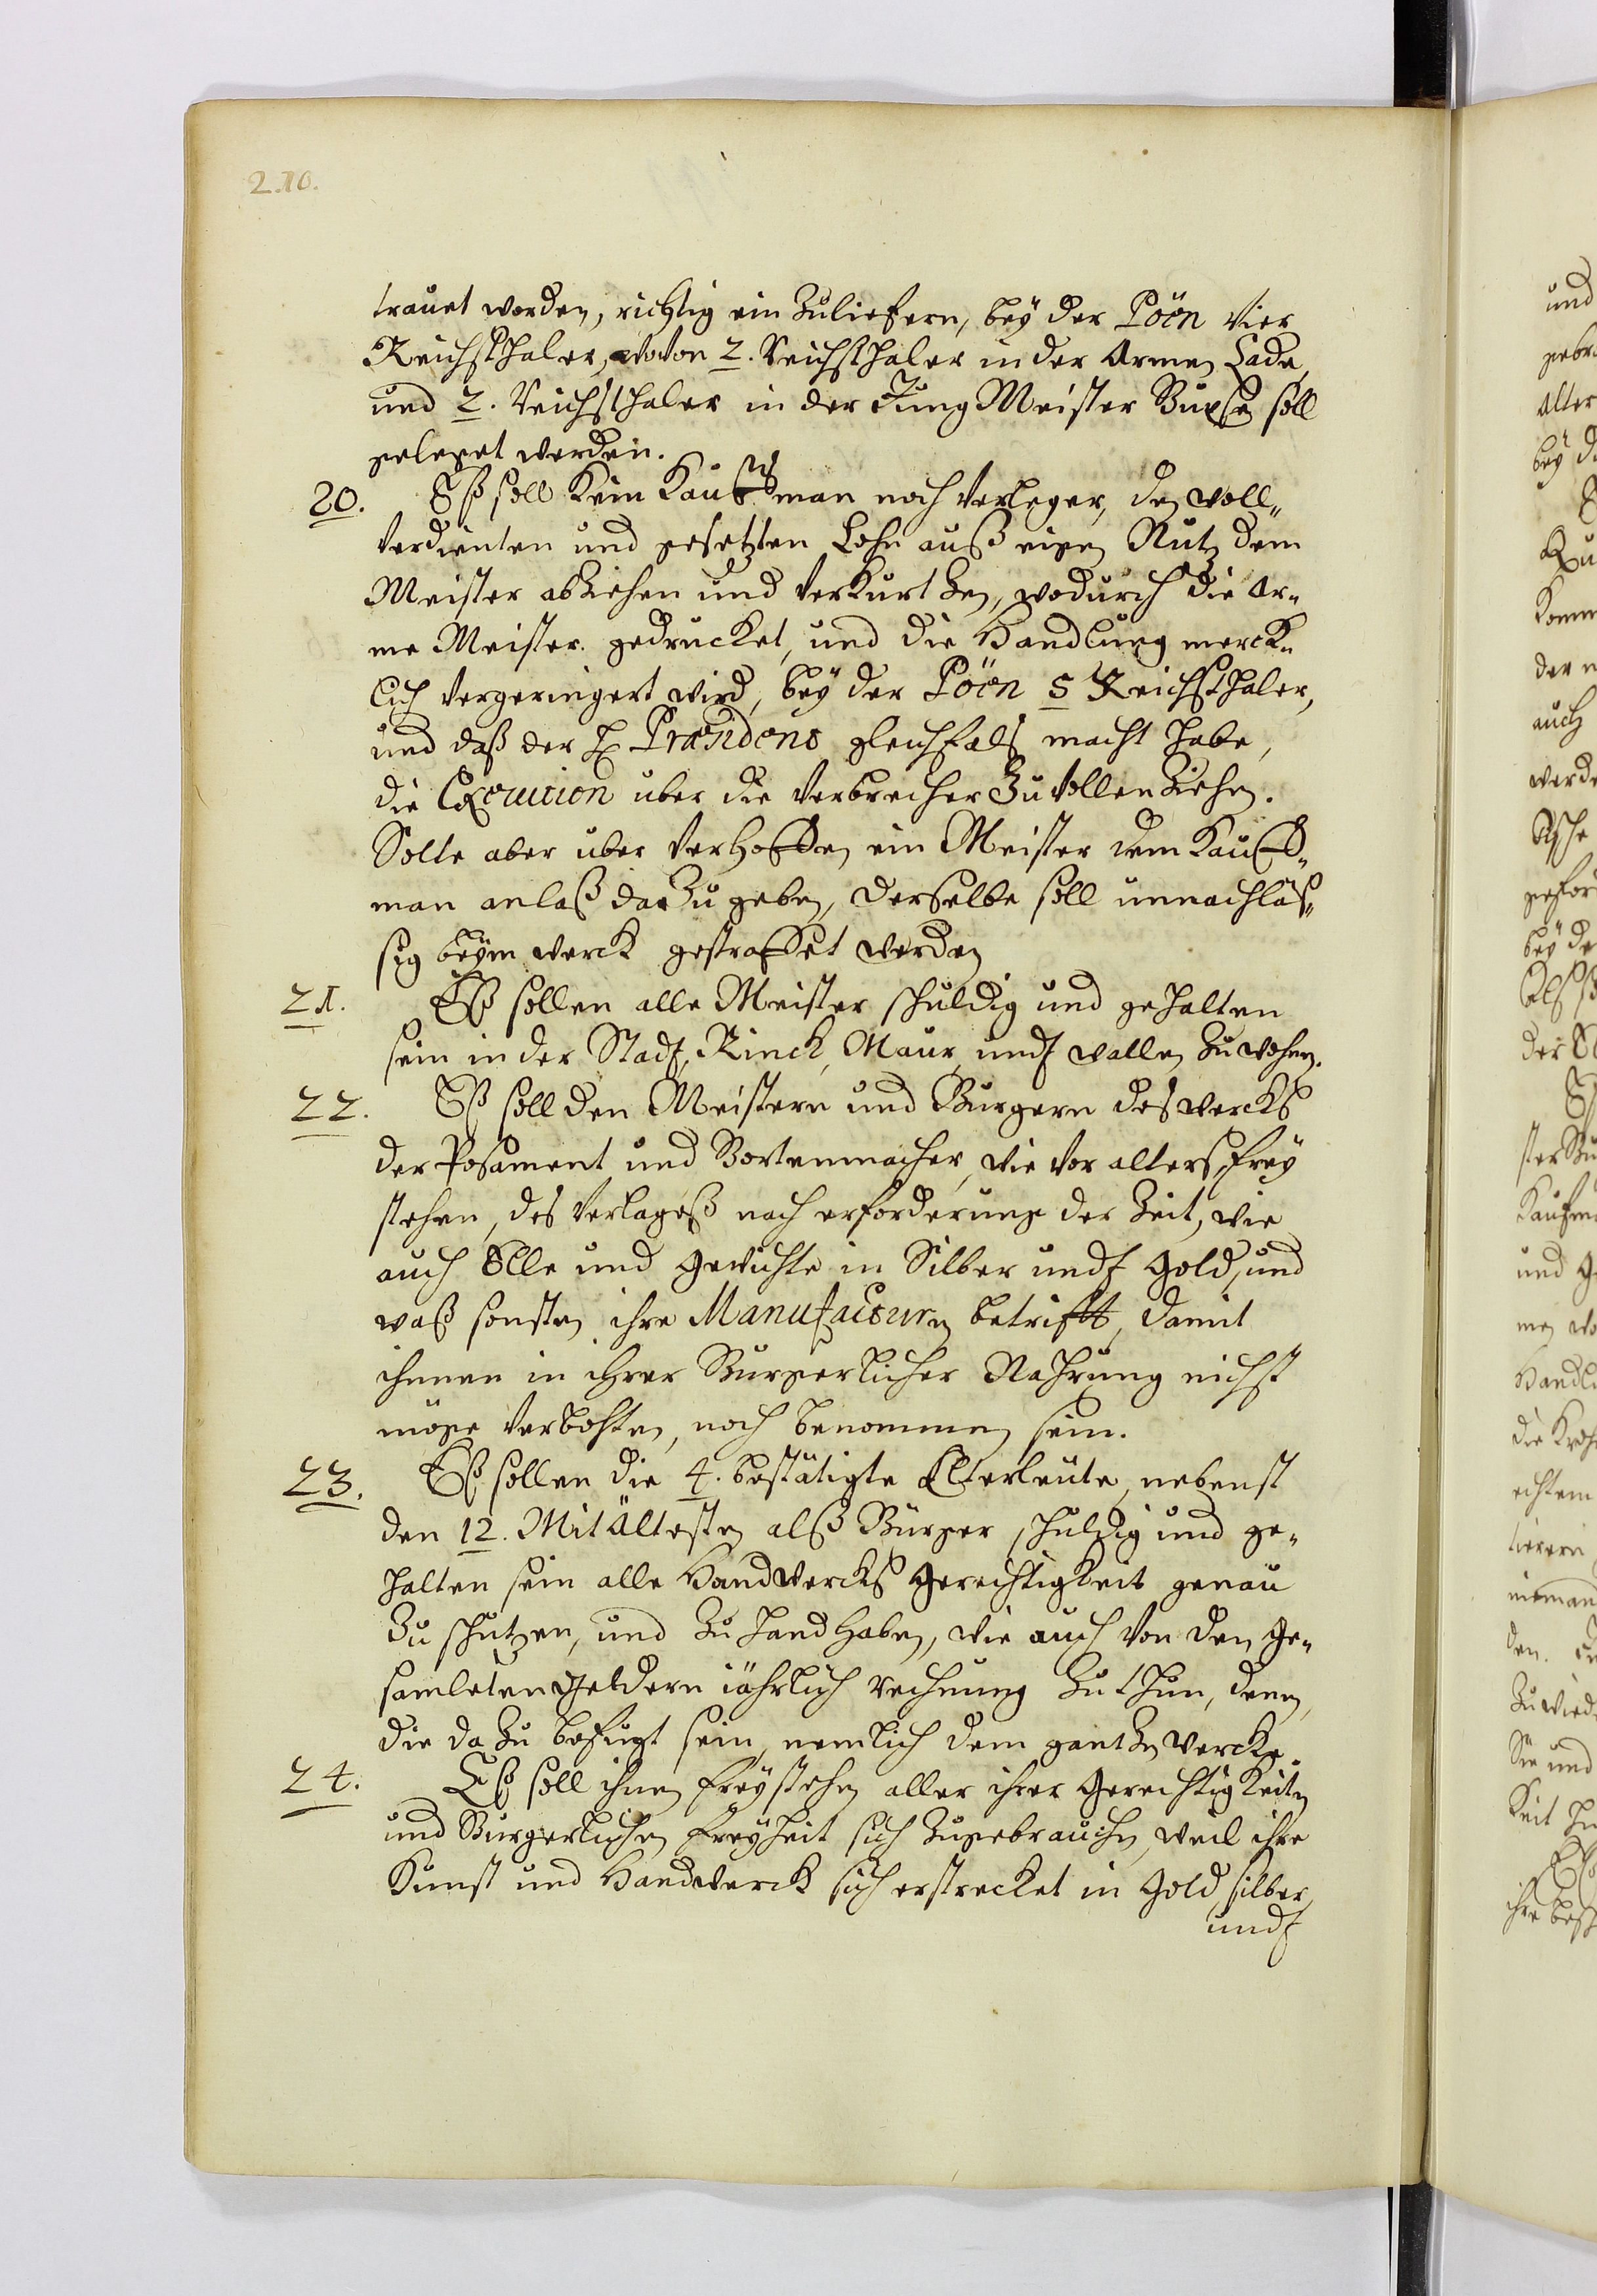 2.10.
trauet worden, richtig ein Zuliefern, beÿ der Pöen vier
Reichsthaler, wovon 2. Reichsthaler in der Armen Lade,
und 2. Reichsthaler in der Jung Meister Buxse soll
geleget werden.
20. Eß soll Kein Kauffman noch Verleger, den woll„
verdienten und gesetzten Lohn auß eigen Nutz dem
Meister abZiehen und verkurtzen, wodurch die Ar„
me Meister gedrucket, und die Handlung merck„
lich vergeringert wird, beÿ der Pöen 5 Reichsthaler,
und daß der H Præsidens gleichfals macht habe,
die Execution uber die Verbrecher Zu vollenZiehen.
Solte aber uber verhoffen ein Meister dem Kauff„
man anlaß daZu geben, derselbe soll unnachläs„
sig beÿm werck gestraffet werden
21. Eß sollen alle Meister schuldig und gehalten
sein in der Stadt, Rinck, Maur, undt wallen Zu wohnen.
22. Eß soll den Meistern und Burgern des wercks
der Posament und Bortenmacher, wie vor alters, freÿ
stehen, des Verlageß nach erforderung der Zeit, wie
auch Elle und Gewichte in Silber undt Gold, und
waß sonsten ihre Manufacturen betrifft, damit
ihnen in ihrer Burgerlicher Nahrung nichst
möge verbohten, noch benommen sein.
23. Eß sollen die 4. bestätigte Elterleute, nebenst
den 12. Mitältesten alß Bürger schuldig und ge„
halten sein alle Handwercks Gerechtigkeit genau
Zu schutzen, und Zu handhaben, wie auch von den Ge„
samleten geldern iährlich rechnung Zu thun, denen,
die da Zu befugt sein, nemlich dem gantzen wercke.
24. Eß soll ihnen freÿ stehen aller ihrer Gerechtigkeiten
und Burgerlichen freÿheit sich Zugebrauchen, weil ihre
Kunst und Handwerck sich erstrecket in Gold, silber,
undt